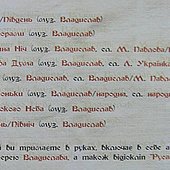 /Південь (муз. Владислав)
орали (муз. Владислав)
на Ніч (муз. Владислав, сл. М. Павлова/
ва Дума (муз. Владислав, сл. Л. Українка
(муз. Владислав, сл. М. Павлов)
(муз. Владислав/народна, сл. народ
окого Неба (муз. Владислав)
ень/Північ (муз. Владислав)
й ви тримаєте в руках, включає в себе
ерею Владислава, а також відеокліп "Руса